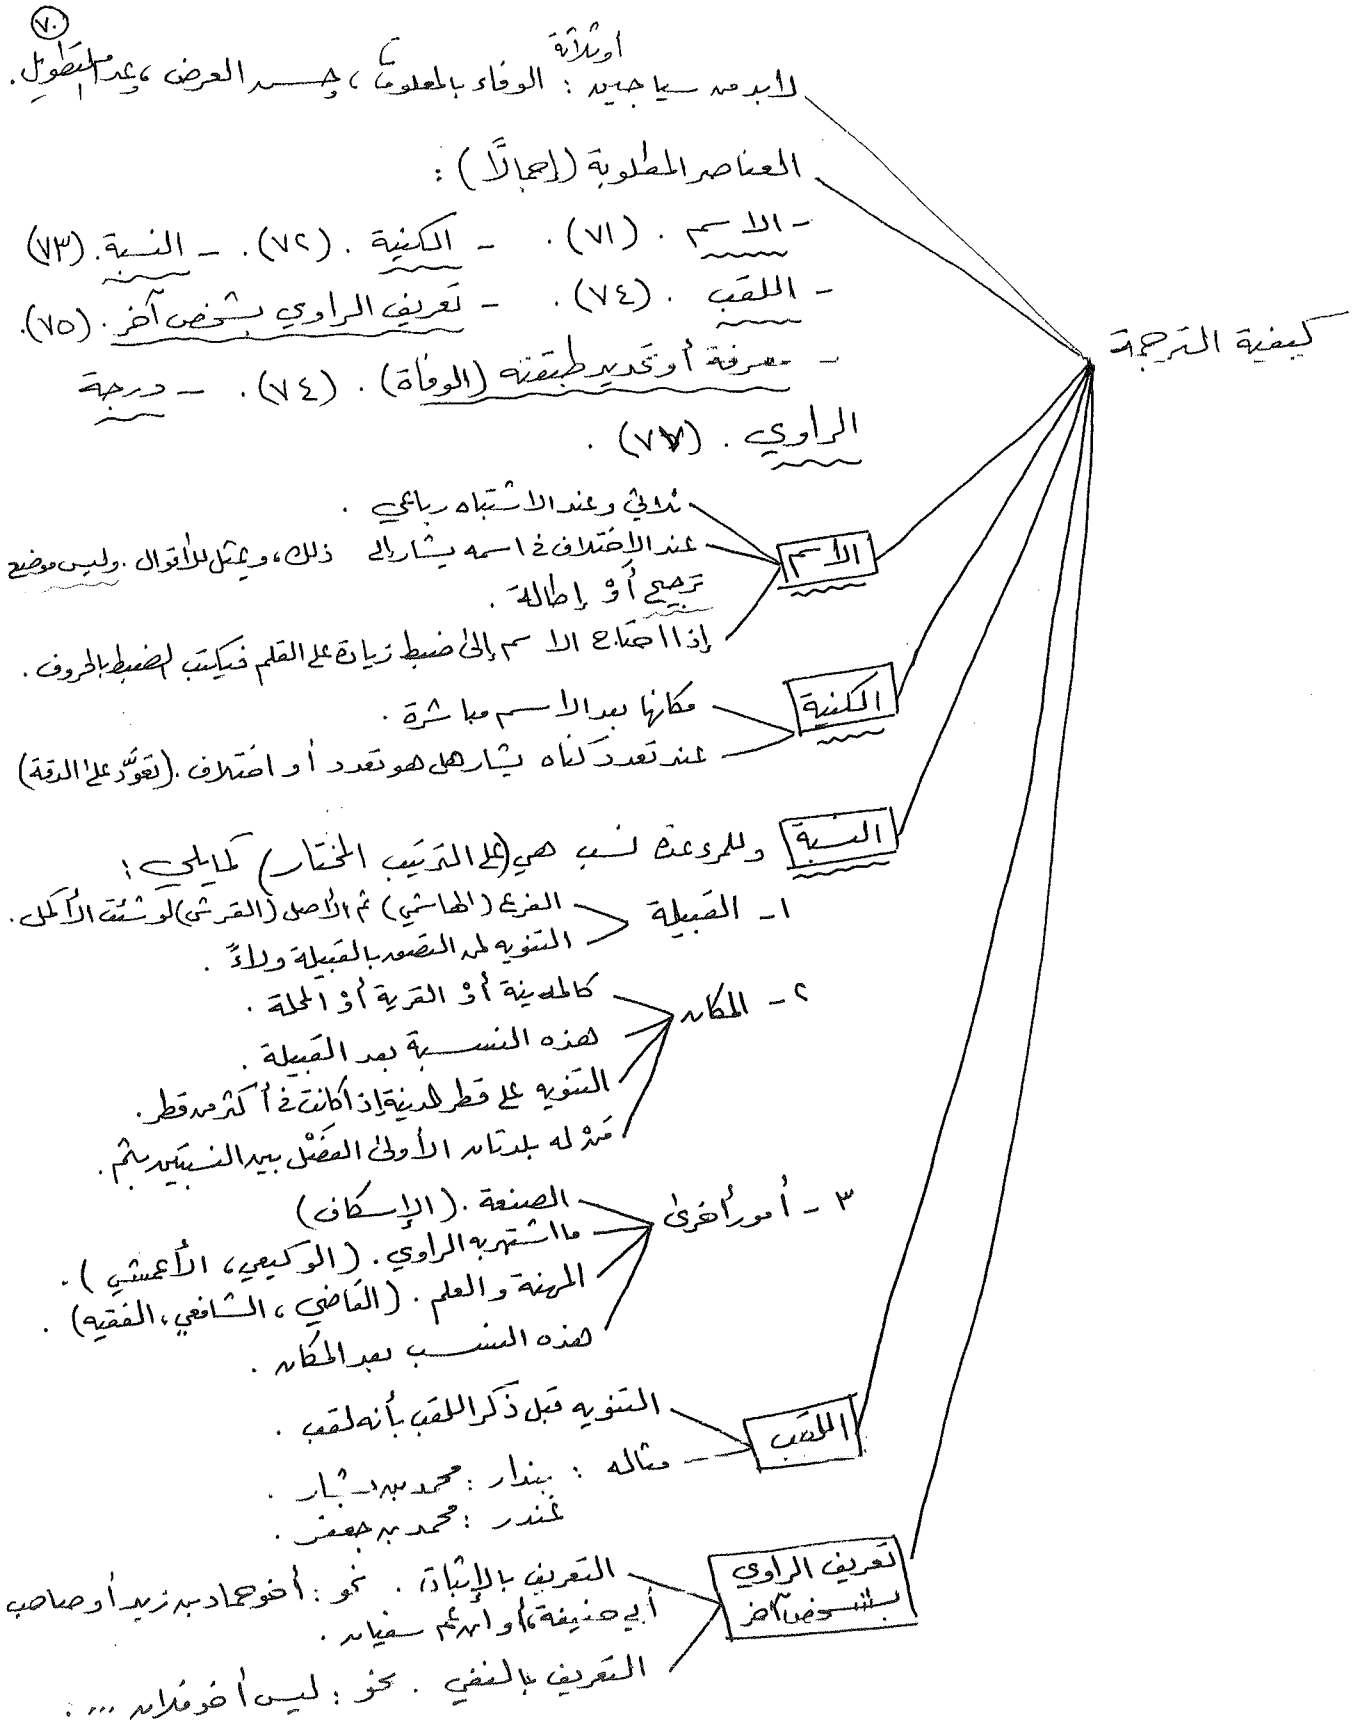 ٧٠
أو ثلاثة
لابد من سياجين : الوفاء بالمعلومات ، وحسن العرض ، وعدم التطويل .
العناصر المطلوبة (إجمالًا) :
- الاسم . (٧١) . - الكنية . (٧٢) . - النسبة . (٧٣)
- اللقب . (٧٤) . - تعريف الراوي بشخص آخر . (٧٥) .
كيفية الترجمة
- معرفة أو تحديد طبقته (الوفاة) . (٧٤) . - درجة
الراوي . (٧٧) .
ثلاثي وعند الاشتباه رباعي .
الاسم
عند الاختلاف في اسمه يشار إلى ذلك ، ويمثل للأقوال . وليس موضع
ترجيح أوْ إطالة .
إذا احتاج الاسم إلى ضبط زيادة على القلم فيكتب الضبط بالحروف .
الكنية
مكانها بعد الاسم مباشرة .
عند تعدد كناه يشار هل هو تعدد أو اختلاف . (تعوَّد على الدقة)
النسبة وللمرء عدة نسب هي (على الترتيب المختار) كما يلي :
١- القبيلة
الفرع (الهاشمي) ثم الأصل (القرشي) لو شئت الأكمل .
التنويه لمن التصق بالقبيلة ولاءً .
٢- المكان
كالمدينة أوْ القرية أوْ المحلة .
هذه النسبة بعد القبيلة .
التنويه على قطر المدينة إذا كانت في أكثر من قطر .
مَنْ له بلدتان الأولى الفَصْل بين النسبتين بثم .
٣- أمور أخرى
الصنعة . (الإسكاف)
ما اشتهر به الراوي . (الوكيعي ، الأعمشي) .
المهنة والعلم . (القاضي ، الشافعي ، الفقيه) .
هذه النسب بعد المكان .
اللقب
التنويه قبل ذكر اللقب بأنه لقب .
مثاله : بندار : محمد بن بشار .
غندر : محمد بن جعفر .
تعريف الراوي
بشخص آخر
التعريف بالإثبات . نحو : أخو حماد بن زيد أو صاحب
أبي حنيفة ، أو ابن عم سفيان .
التعريف بالنفي . نحو : ليس أخو فلان ... .